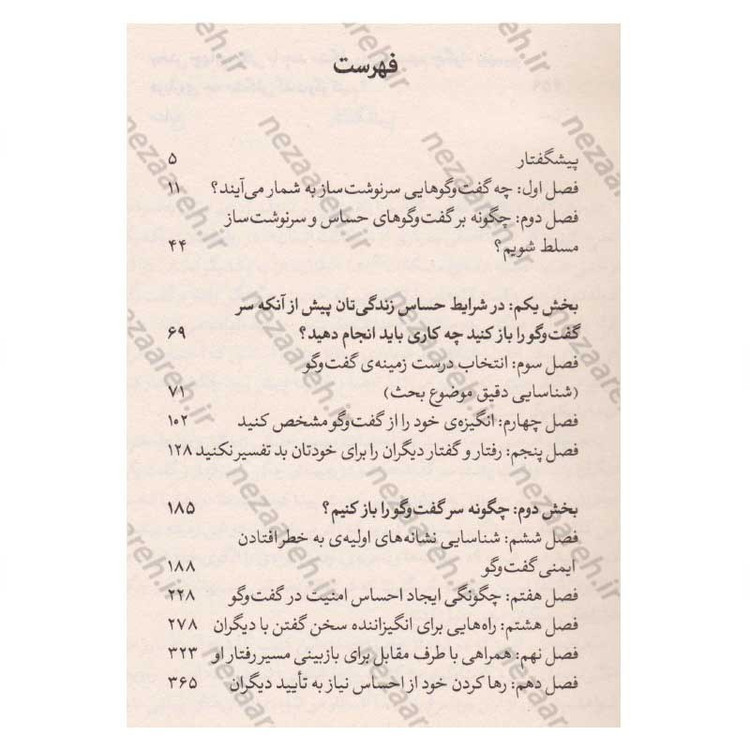 فهرست
پیشگفتار ۵
فصل اول: چه گفت‌وگوهایی سرنوشت‌ساز به شمار می‌آیند؟ ۱۱
فصل دوم: چگونه بر گفت‌وگوهای حساس و سرنوشت‌ساز
مسلط شویم؟ ۴۴
بخش یکم: در شرایط حساس زندگی‌تان پیش از آنکه سر
گفت‌وگو را باز کنید چه کاری باید انجام دهید؟ ۶۹
فصل سوم: انتخاب درست زمینه‌ی گفت‌وگو
(شناسایی دقیق موضوع بحث) ۷۱
فصل چهارم: انگیزه‌ی خود را از گفت‌وگو مشخص کنید ۱۰۲
فصل پنجم: رفتار و گفتار دیگران را برای خودتان بد تفسیر نکنید ۱۲۸
بخش دوم: چگونه سر گفت‌وگو را باز کنیم؟ ۱۸۵
فصل ششم: شناسایی نشانه‌های اولیه‌ی به خطر افتادن
ایمنی گفت‌وگو ۱۸۸
فصل هفتم: چگونگی ایجاد احساس امنیت در گفت‌وگو ۲۲۸
فصل هشتم: راه‌هایی برای انگیزاننده سخن گفتن با دیگران ۲۷۸
فصل نهم: همراهی با طرف مقابل برای بازبینی مسیر رفتار او ۳۲۳
فصل دهم: رها کردن خود از احساس نیاز به تأیید دیگران ۳۶۵
nezaareh.ir